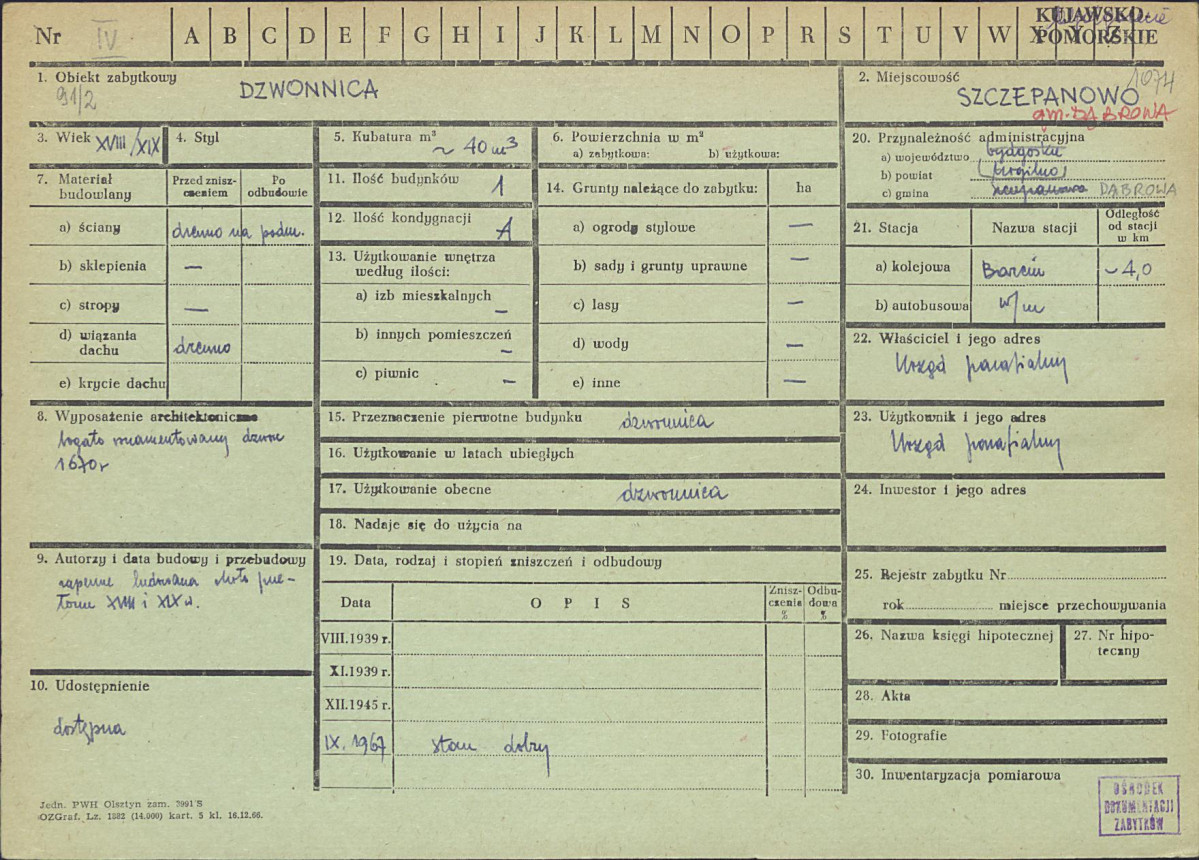 KUJAWSKO-
POMORSKIE
Nr IV A B C D E F G H I J K L M N O P R S T U V W X Y Z
1. Obiekt zabytkowy
91/2
DZWONNICA
2. Miejscowość
1074
SZCZEPANOWO
gm. DĄBROWA
3. Wiek XVIII/XIX
4. Styl
5. Kubatura m³
~ 40 m³
6. Powierzchnia w m²
a) zabytkowa: b) użytkowa:
20. Przynależność administracyjna
a) województwo bydgoskie
b) powiat (Mogilno)
c) gmina Szczepanowo DĄBROWA
7. Materiał budowlany
Przed zniszczeniem
Po odbudowie
a) ściany drewno na podm.
b) sklepienia —
c) stropy —
d) wiązania dachu drewno
e) krycie dachu
11. Ilość budynków 1
12. Ilość kondygnacji 1
13. Użytkowanie wnętrza
według ilości:
a) izb mieszkalnych –
b) innych pomieszczeń –
c) piwnic –
14. Grunty należące do zabytku: ha
a) ogrody stylowe —
b) sady i grunty uprawne —
c) lasy —
d) wody —
e) inne —
21. Stacja
Nazwa stacji
Odległość
od stacji
w km
a) kolejowa Barcin ~ 4,0
b) autobusowa w/m
22. Właściciel i jego adres
Urząd parafialny
8. Wyposażenie architektoniczne
bogato ornamentowany dzwon
1670 r
15. Przeznaczenie pierwotne budynku dzwonnica
16. Użytkowanie w latach ubiegłych
17. Użytkowanie obecne dzwonnica
18. Nadaje się do użycia na
23. Użytkownik i jego adres
Urząd parafialny
24. Inwestor i jego adres
9. Autorzy i data budowy i przebudowy
zapewne budowana około prze-
łomu XVIII i XIX w.
19. Data, rodzaj i stopień zniszczeń i odbudowy
Data
O P I S
Zniszczenia %
Odbudowa %
VIII.1939 r.
XI.1939 r.
XII.1945 r.
IX. 1967 stan dobry
25. Rejestr zabytku Nr
rok miejsce przechowywania
26. Nazwa księgi hipotecznej
27. Nr hipo-
teczny
10. Udostępnienie
dostępna
28. Akta
29. Fotografie
30. Inwentaryzacja pomiarowa
OŚRODEK
DOKUMENTACJI
ZABYTKÓW
Jedn. PWH Olsztyn zam. 3991 S
OZGraf. Lz. 1882 (14.000) kart. 5 kl. 16.12.66.